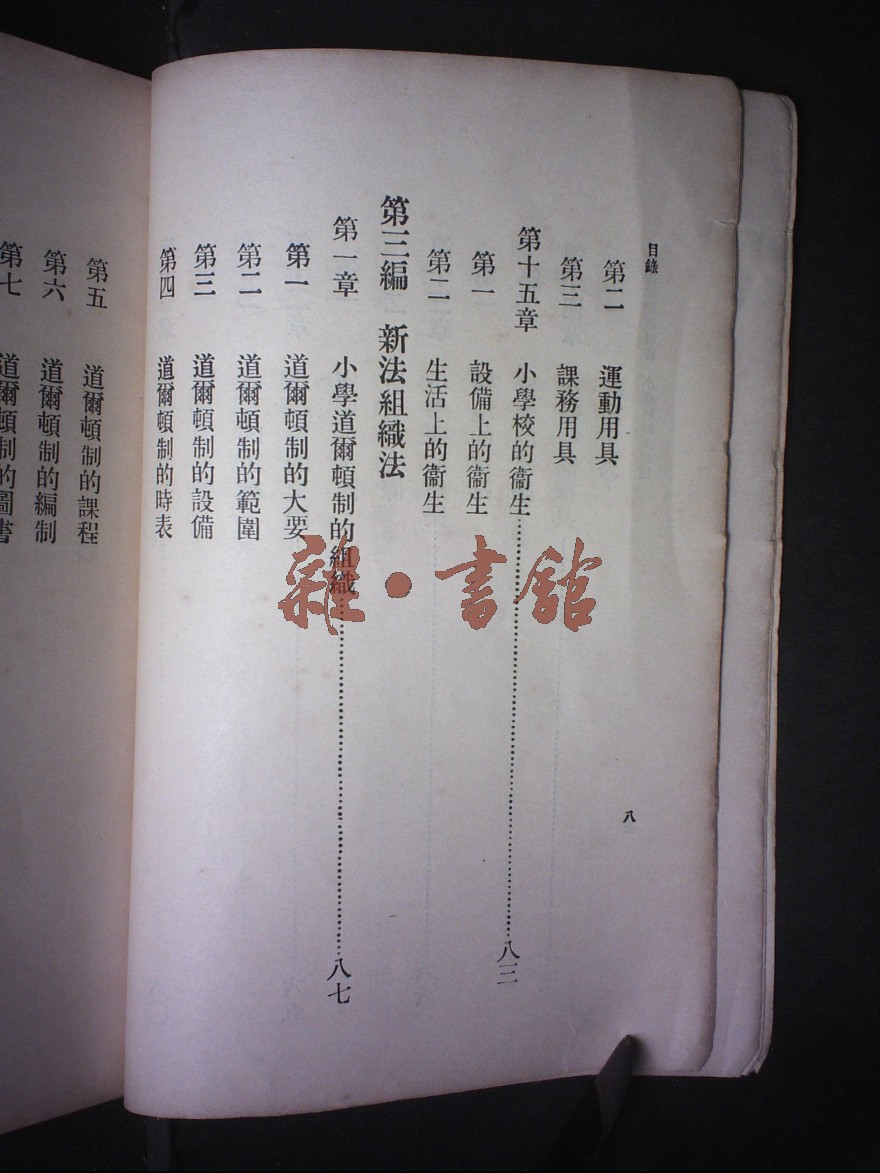 目錄
第二 運動用具
第三 課務用具
第十五章 小學校的衞生……………………八三
第一 設備上的衞生
第二 生活上的衞生
第三編 新法組織法
第一章 小學道爾頓制的組織……………………八七
第一 道爾頓制的大要
第二 道爾頓制的範圍
第三 道爾頓制的設備
第四 道爾頓制的時表
八
第五 道爾頓制的課程
第六 道爾頓制的編制
第七 道爾頓制的圖書
雜·書館